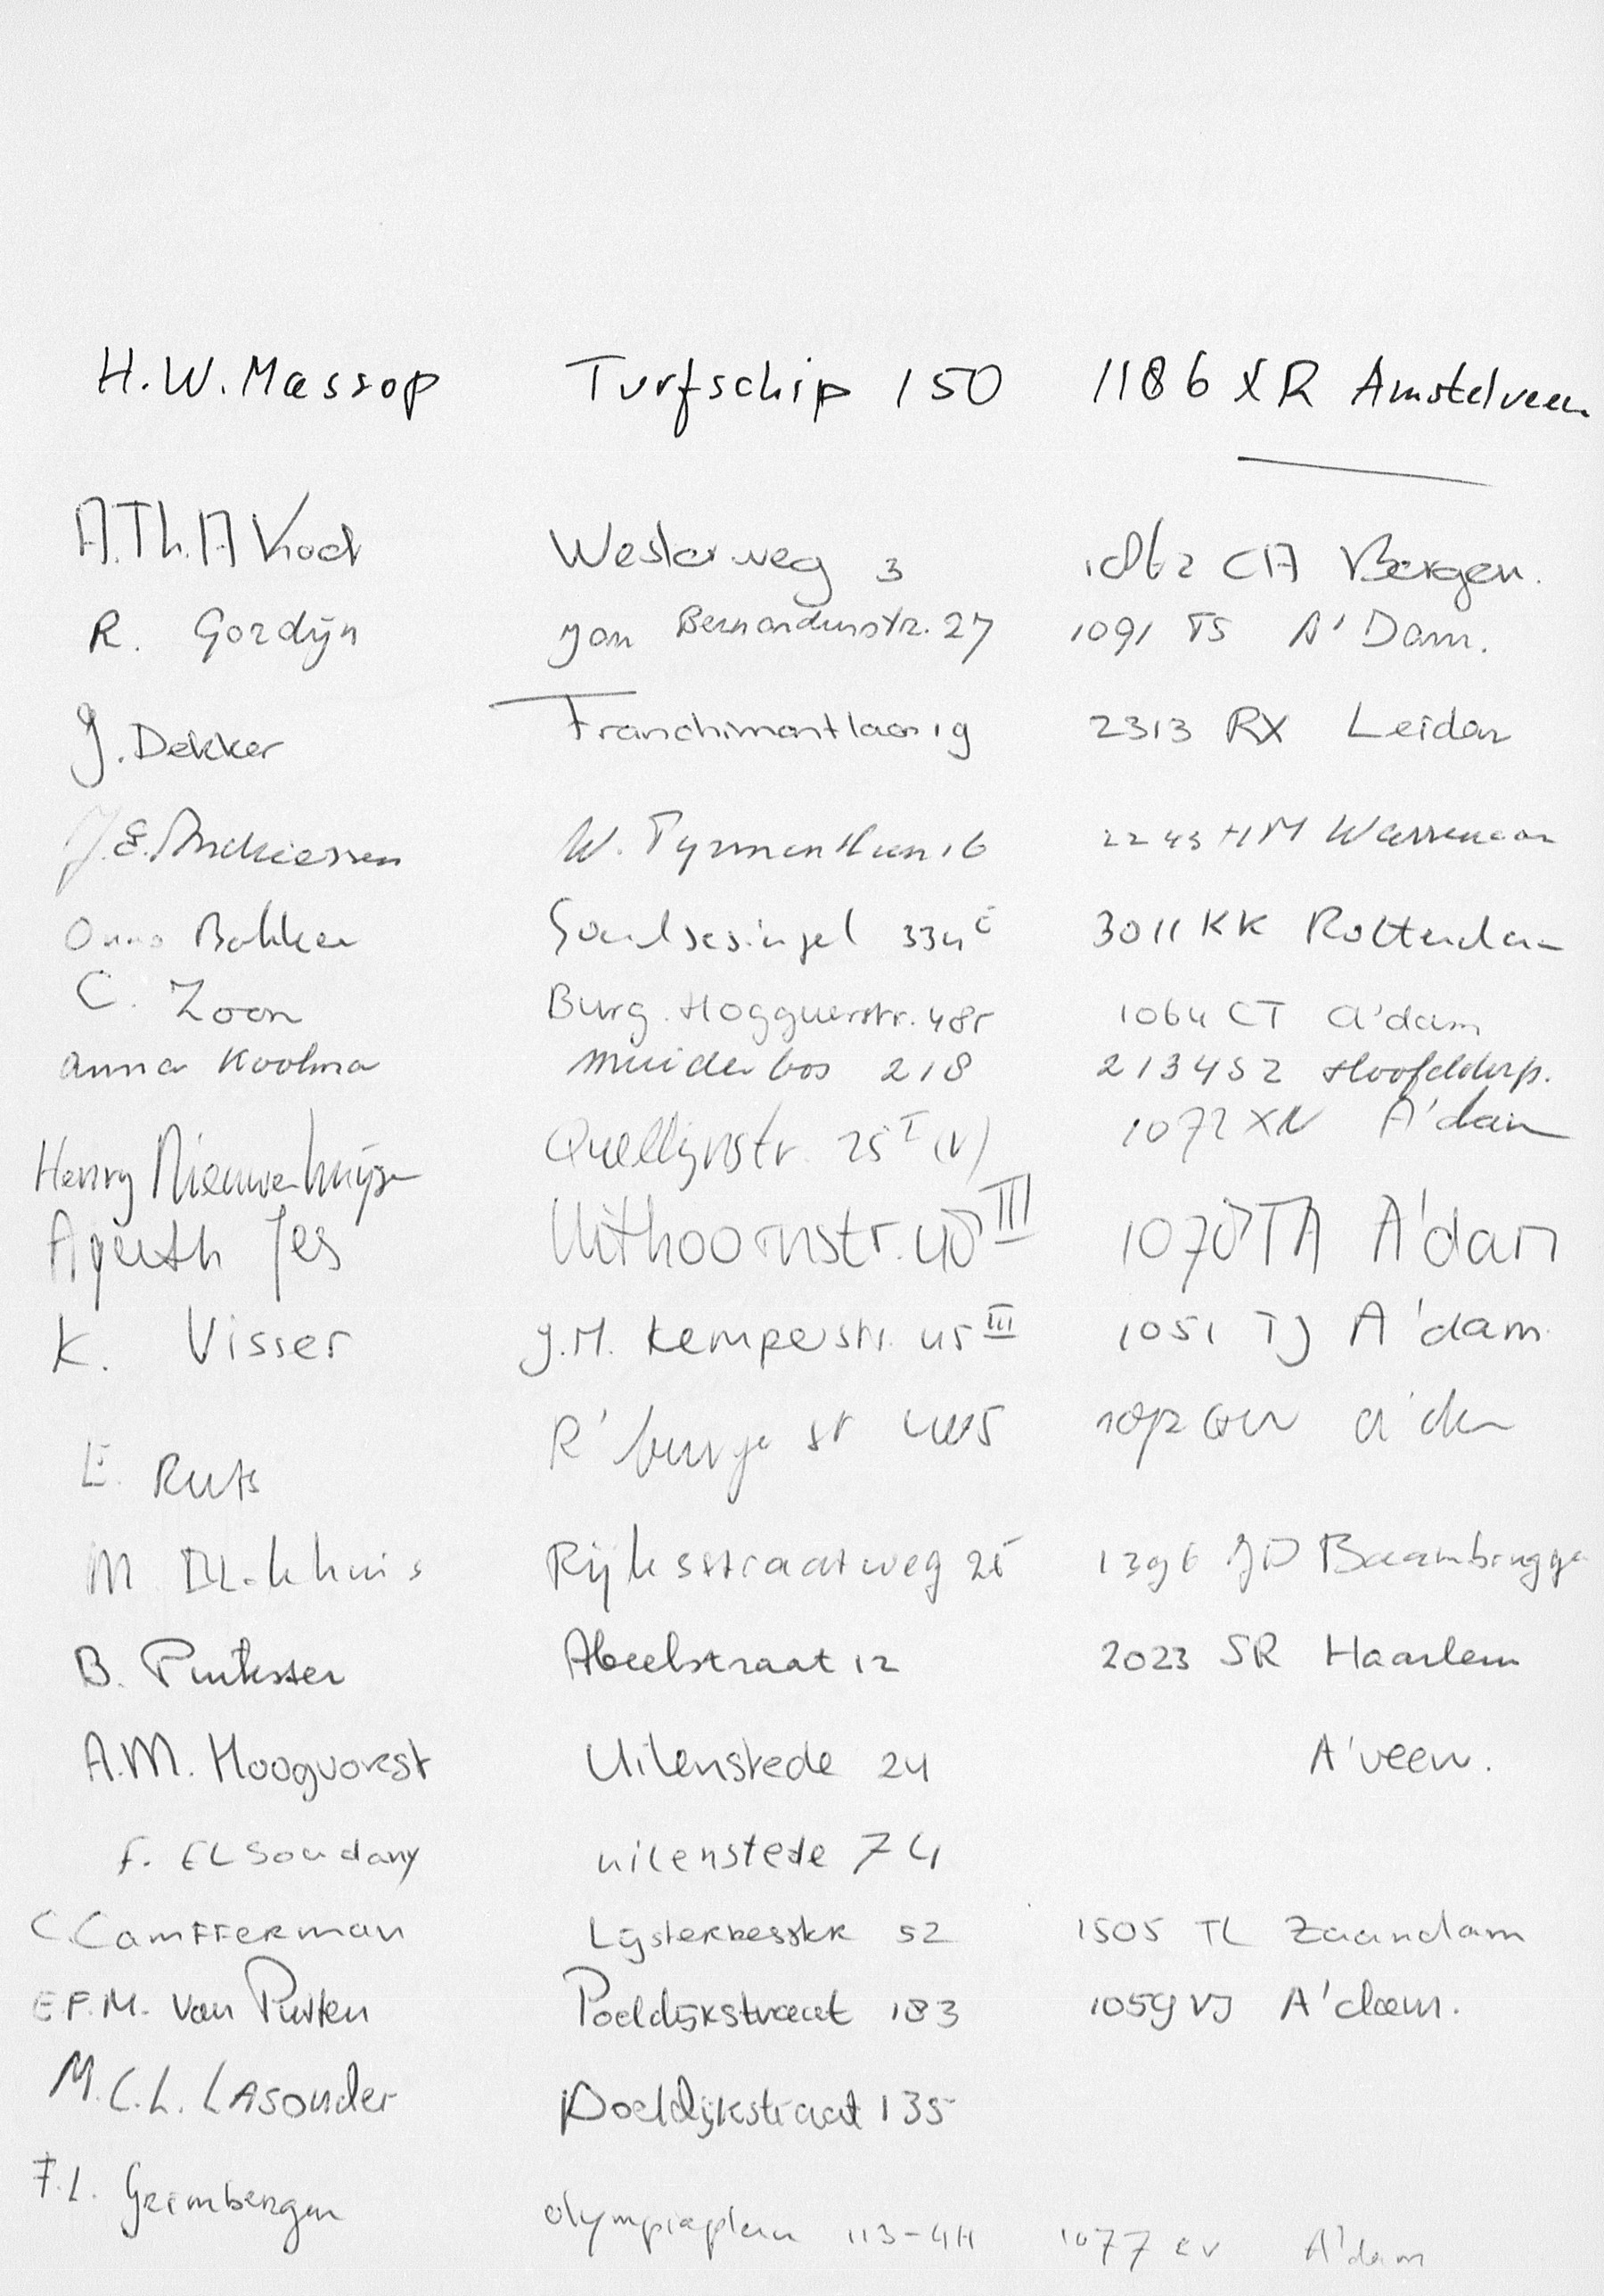 H.W. Massop Turfschip 150 1186 XR Amstelveen
A.Th.A Westerweg 3 CA Bergen.
R. Gordijn Jan Bernardusstr. 27 1091 TS A'Dam.
J. Dekker Franchimontlaan 19 2313 RX Leiden
J.E. Andriessen W. 16 2243 HM Wassenaar
Onno Bakker Goudsesingel 334 C 3011 KK Rotterdam
C. Zoon Burg. Hogguerstr. 485 1064 CT a'dam
Anna Koolma Muiderbos 218 2134SZ Hoofddorp.
Henny Nieuwenhuijse Quellijnstr. 25 I (V) 1072 XN A'dam
Jes Uithoornstr. 40 III 1078TA A'dam
K. Visser J.M. Kemperstr. 45 III 1051 TJ A'dam
E. Ruts
M Rijksstraatweg 25 1396 JD Baambrugge
B. Abeelstraat 12 2023 SR Haarlem
A.M. Hoogvorst Uilenstede 24 A'veen.
F. EL Soudany uilenstede 74
C. Camfferman Lijsterbesstr 52 1505 TL Zaandam
E.F.M. van Putten Poeldijkstraat 183 1059 VJ A'dam.
M.C.L. Lasonder Poeldijkstraat 135
F.L. Grimbergen Olympiaplein 113-4H 1077 CV A'dam